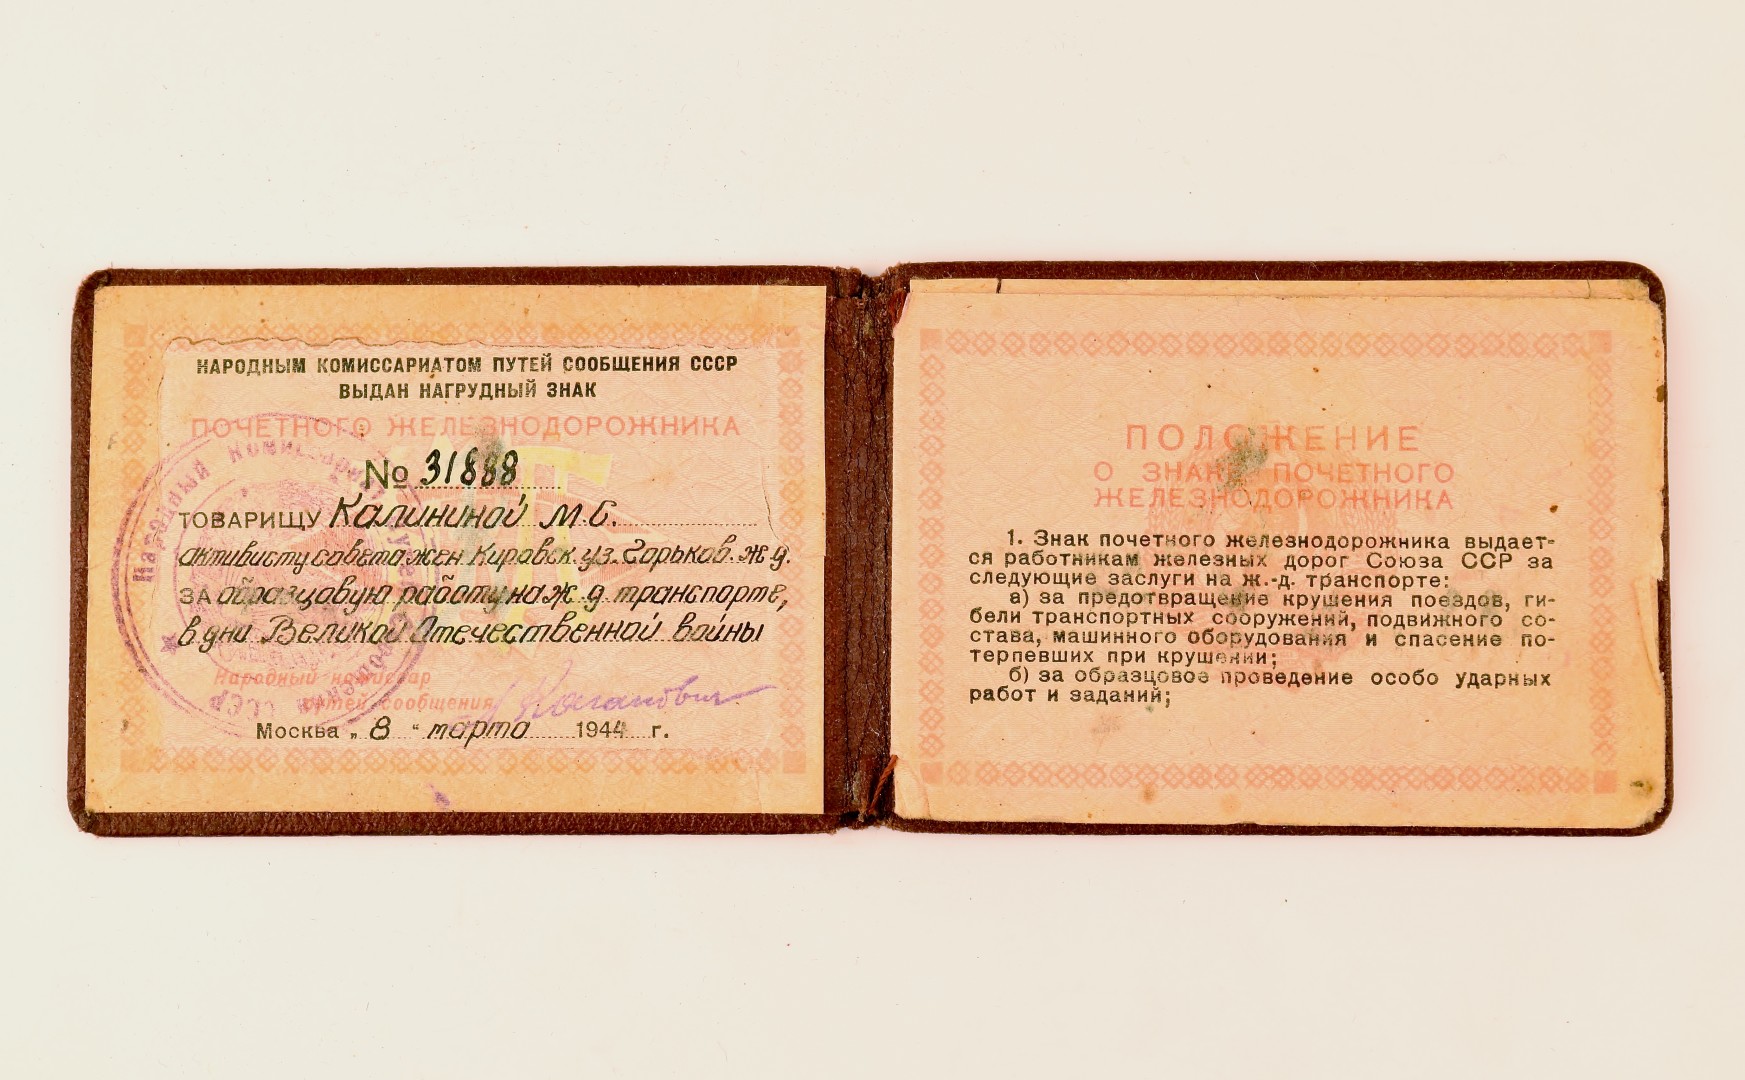 НАРОДНЫМ КОМИССАРИАТОМ ПУТЕЙ СООБЩЕНИЯ СССР
ВЫДАН НАГРУДНЫЙ ЗНАК
ПОЧЕТНОГО ЖЕЛЕЗНОДОРОЖНИКА
№ 31888
ТОВАРИЩУ Калининой М.С.
активисту совета жен Кировск. уз. Горьков. ж.д.
ЗА образцовую работу на ж.д. транспорте,
в дни Великой Отечественной войны
Народный комиссар
путей сообщения Каганович
Москва „ 8 “ марта 1944 г.
Народный Комиссариат Путей Сообщения СССР
ПОЛОЖЕНИЕ
О ЗНАКЕ ПОЧЕТНОГО
ЖЕЛЕЗНОДОРОЖНИКА
1. Знак почетного железнодорожника выдает-
ся работникам железных дорог Союза ССР за
следующие заслуги на ж.-д. транспорте:
а) за предотвращение крушения поездов, ги-
бели транспортных сооружений, подвижного со-
става, машинного оборудования и спасение по-
терпевших при крушении;
б) за образцовое проведение особо ударных
работ и заданий;